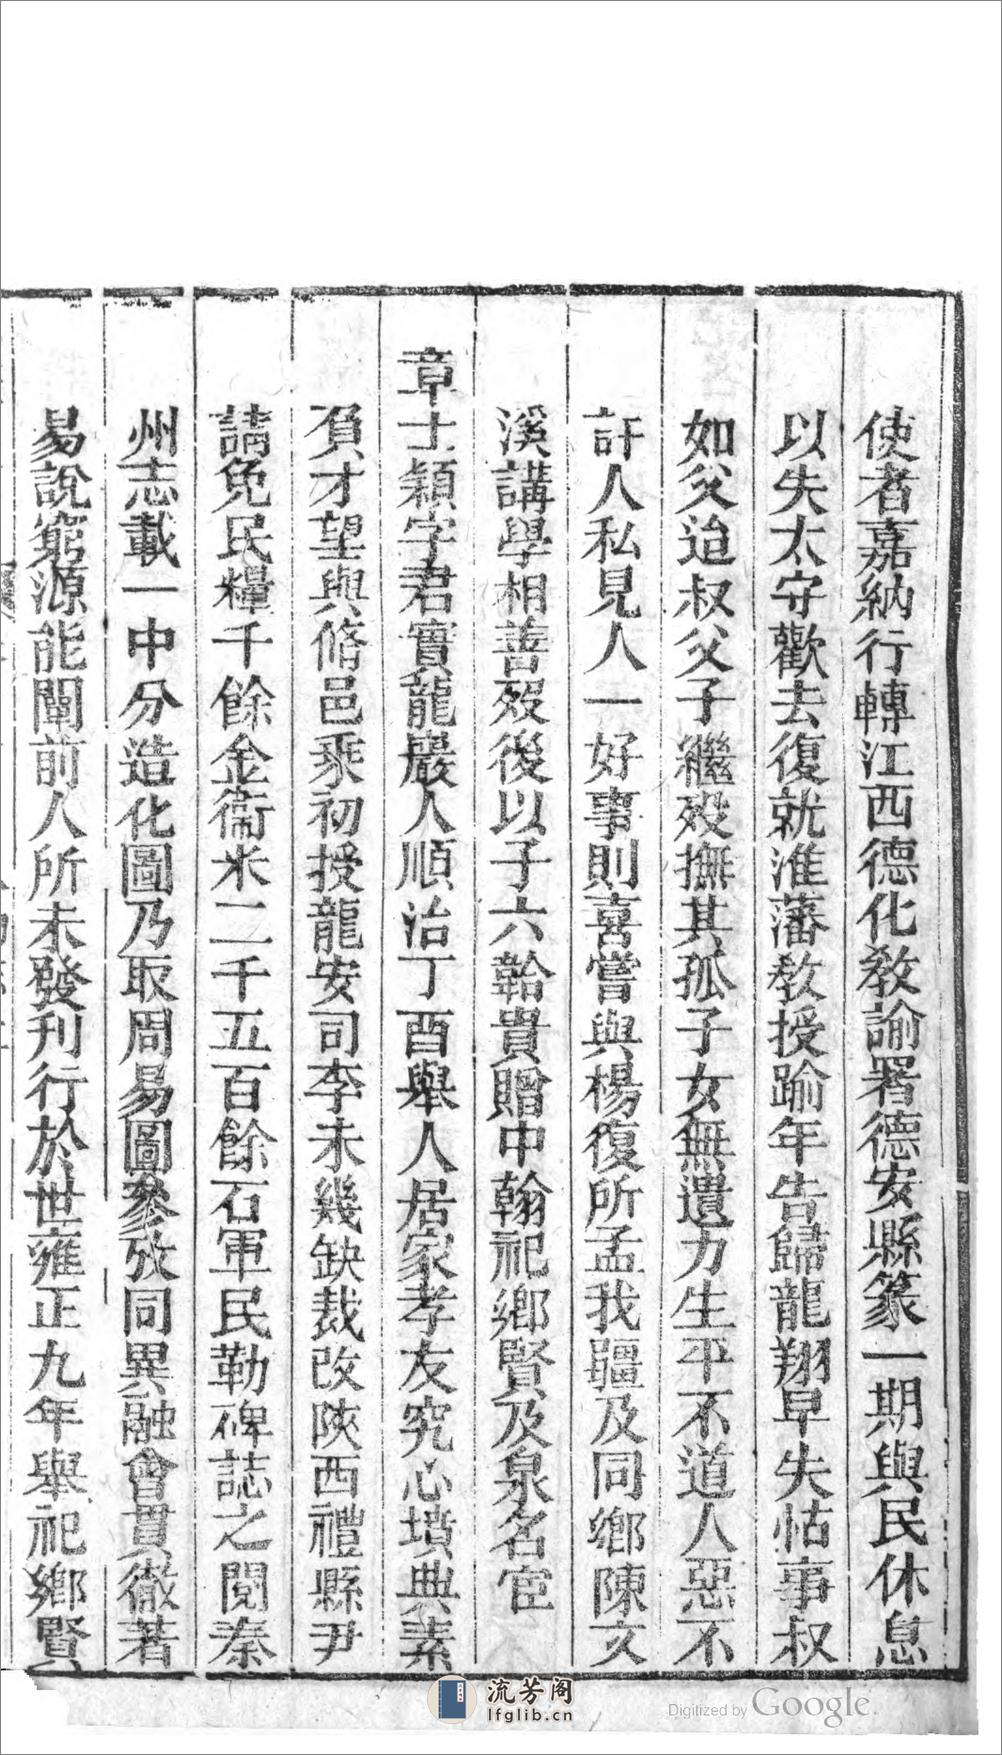 使者嘉納行轉江西德化敎諭署德安縣篆一期與民休息
以失太守歡去復就淮藩敎授踰年告歸龍翔早失怙事叔
如父迨叔父子繼歿撫其孤子女無遺力生平不道人惡不
訐人私見人一好事則喜嘗與楊復所孟我疆及同鄉陳文
溪講學相善歿後以子六韐貴贈中翰祀鄉賢及泉名宦
章士穎字君實龍巖人順治丁酉舉人居家孝友究心墳典素
負才望與脩邑乘初授龍安司李未幾缺裁改陝西禮縣尹
請免民糧千餘金衞米二千五百餘石軍民勒碑誌之閱秦
州志載一中分造化圖乃取周易圖參攷同異融會貫徹著
易說窮源能闡前人所未發刋行於世雍正九年舉祀鄉賢
流芳阁
lfglib.cn
Digitized by Google